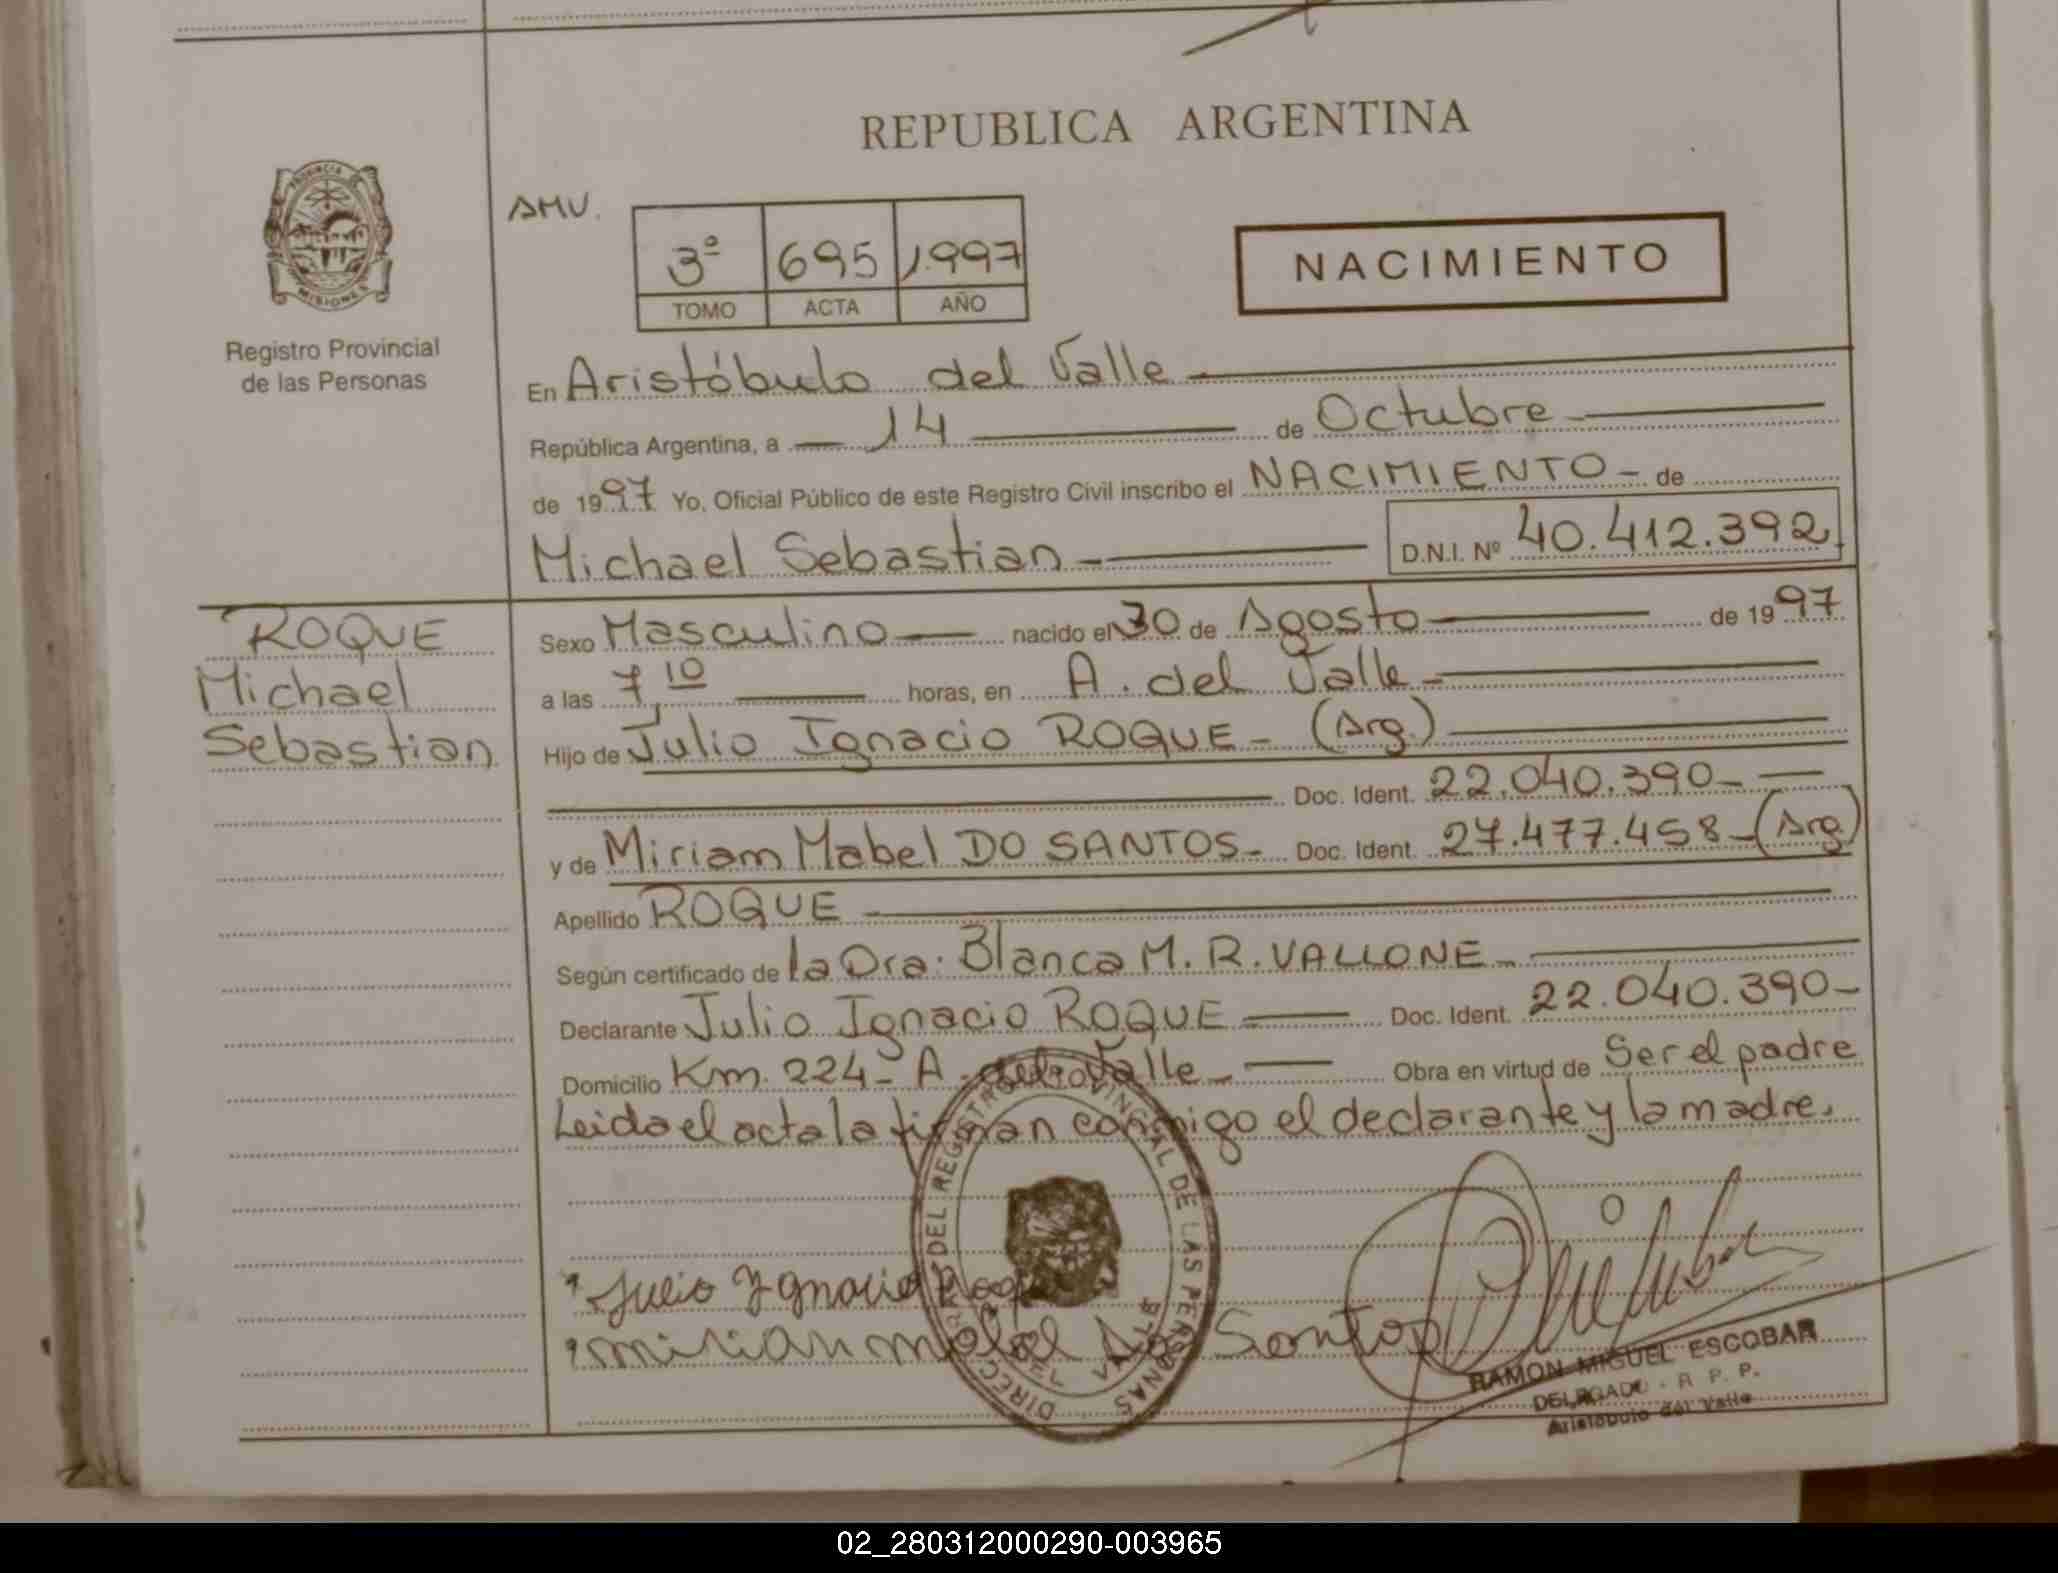 REPUBLICA ARGENTINA
PROVINCIA DE
MISIONES
Registro Provincial
de las Personas
AMV.
3º 695 1.997
TOMO ACTA AÑO
NACIMIENTO
En Aristóbulo del Valle
República Argentina, a 14 de Octubre
de 1997 Yo, Oficial Público de este Registro Civil inscribo el NACIMIENTO - de
Michael Sebastian D.N.I. Nº 40.412.392
ROQUE
Michael
Sebastian
Sexo Masculino nacido el 30 de Agosto de 1997
a las 7,10 horas, en A. del Valle
Hijo de Julio Ignacio ROQUE - (Arg.)
Doc. Ident. 22.040.390-
y de Miriam Mabel DO SANTOS - Doc. Ident. 27.477.458 - (Arg)
Apellido ROQUE
Según certificado de la Dra. Blanca M. R. VALLONE -
Declarante Julio Ignacio ROQUE Doc. Ident. 22.040.390-
Domicilio Km. 224 - A. del Valle - Obra en virtud de Ser el padre
Leida el acta la firman conmigo el declarante y la madre.
DIRECC DEL REGISTRO PROVINCIAL DE LAS PERSONAS
Julio Ygnacio Roque
mirian mabel Do Santos
RAMON MIGUEL ESCOBAR
DELEGADO - R. P. P.
Aristóbulo del Valle
02_280312000290-003965